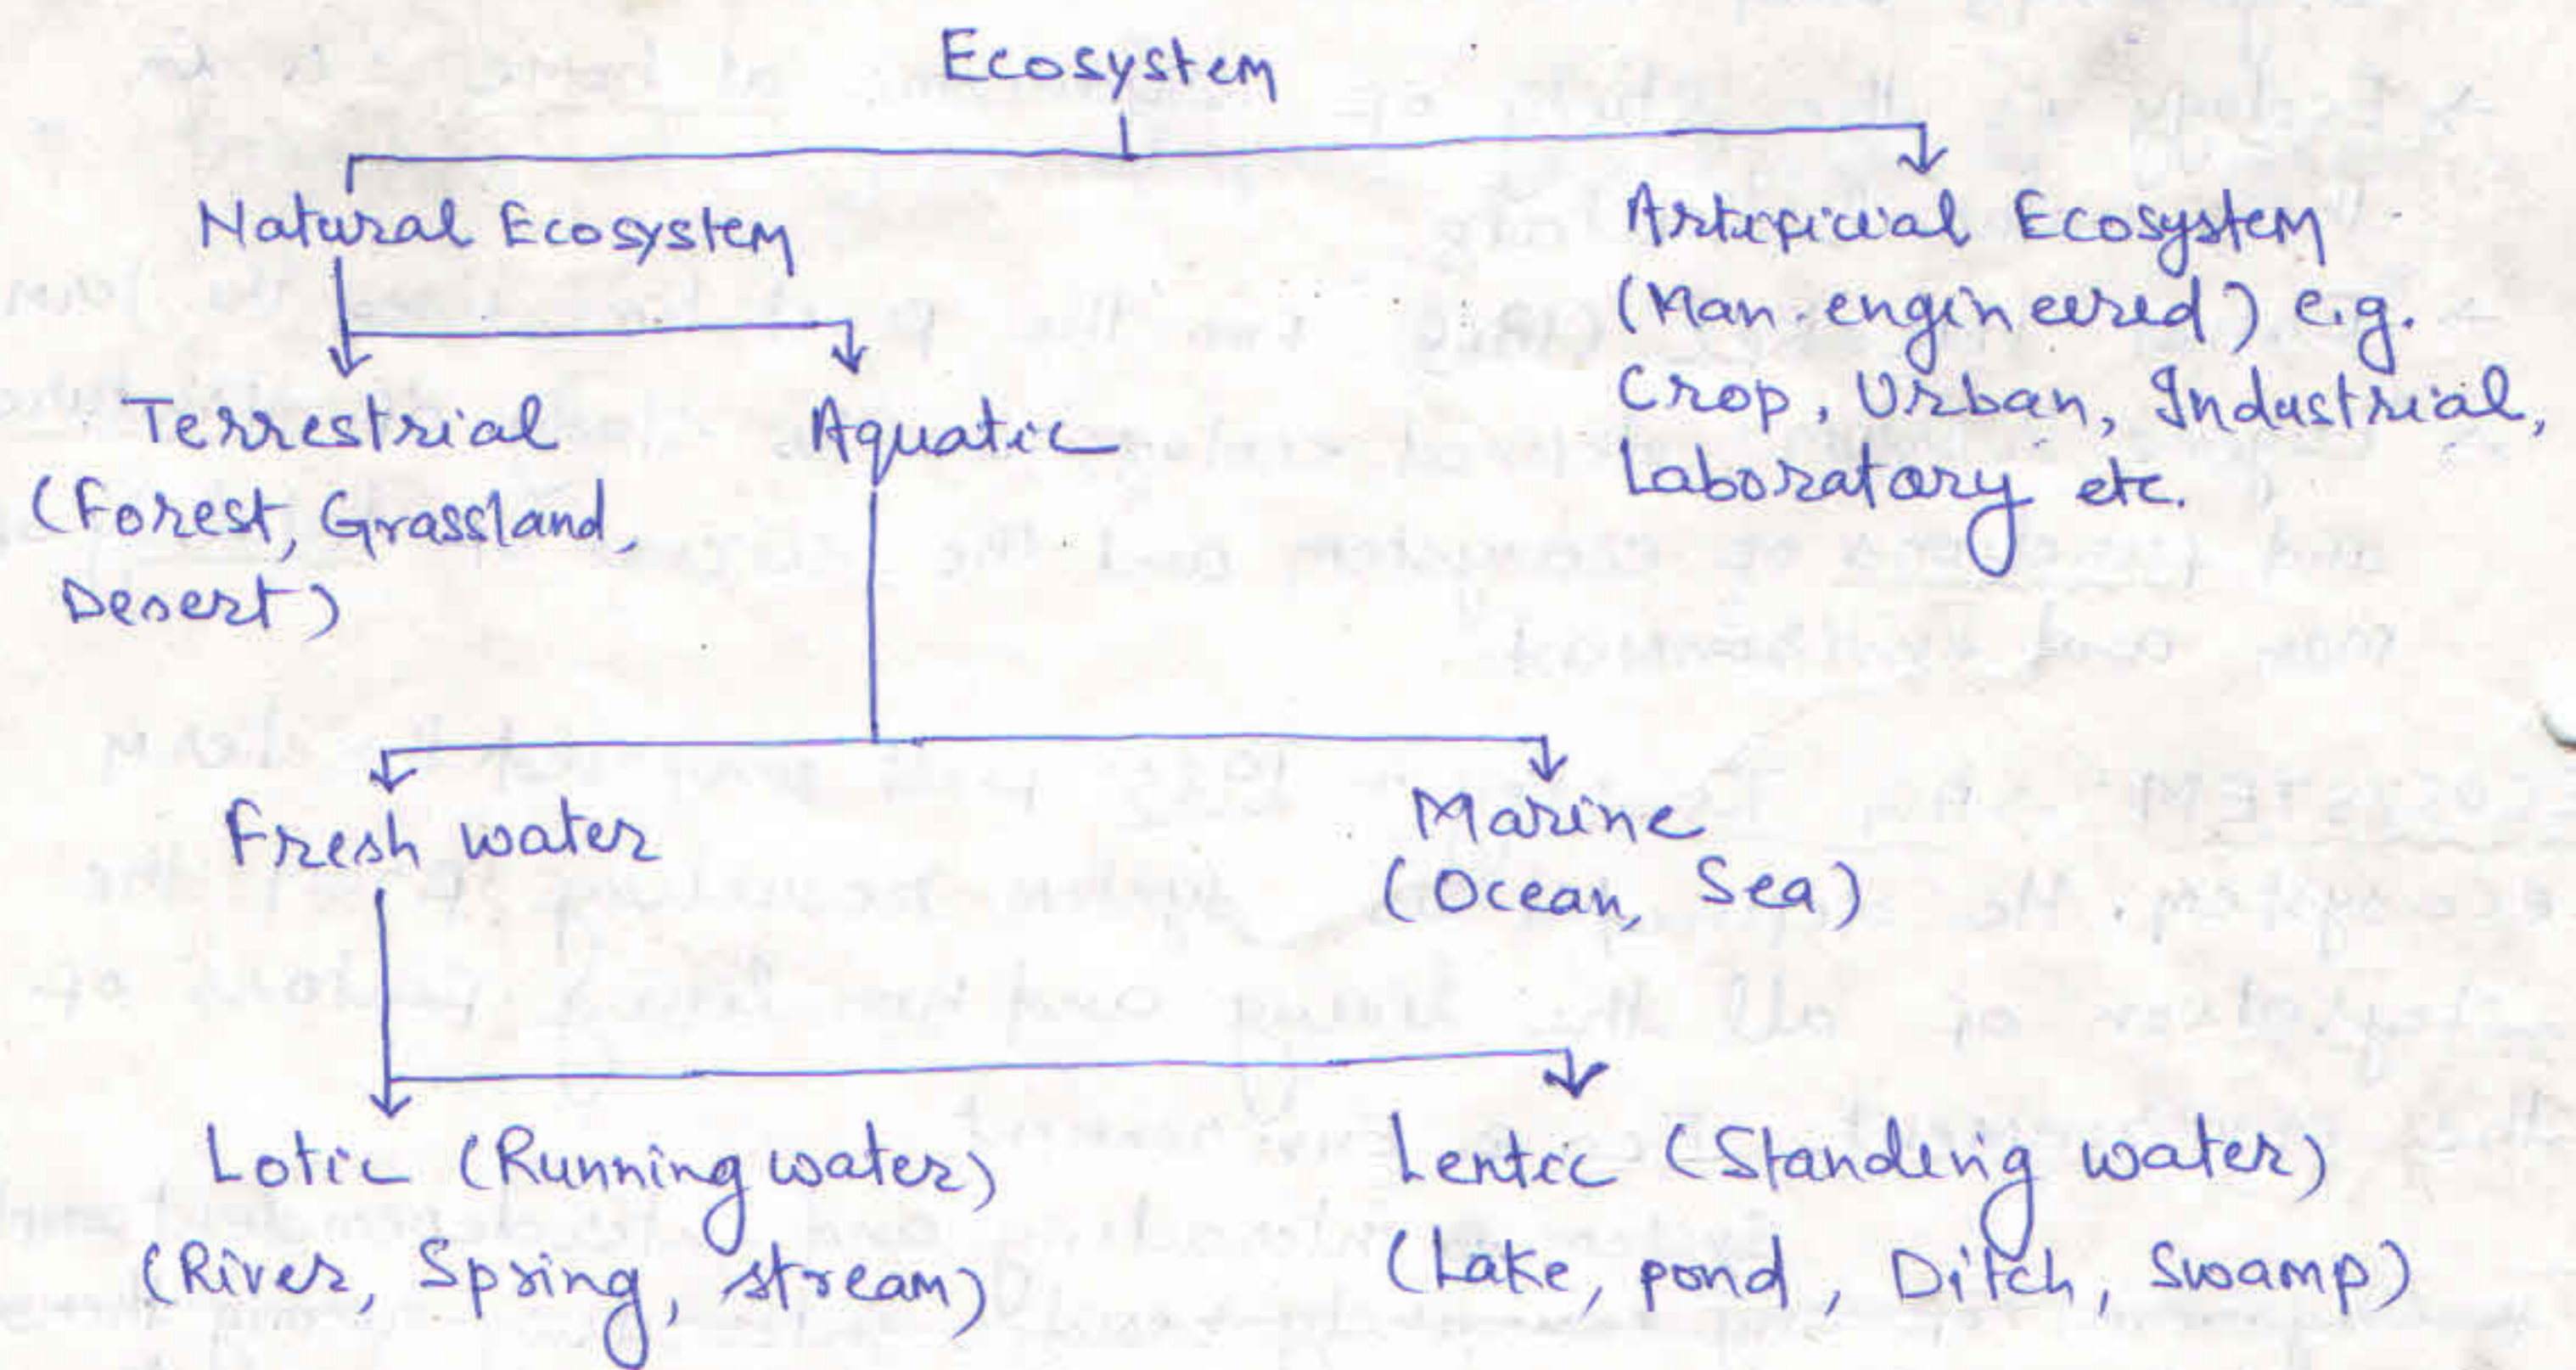 Ecosystem
Natural Ecosystem
Artificial Ecosystem
(Man-engineered) e.g.
Crop, Urban, Industrial,
Laboratory etc.
Terrestrial
(Forest, Grassland,
Desert)
Aquatic
Fresh water
Marine
(Ocean, Sea)
Lotic (Running water)
(River, Spring, stream)
Lentic (Standing water)
(Lake, pond, Ditch, Swamp)